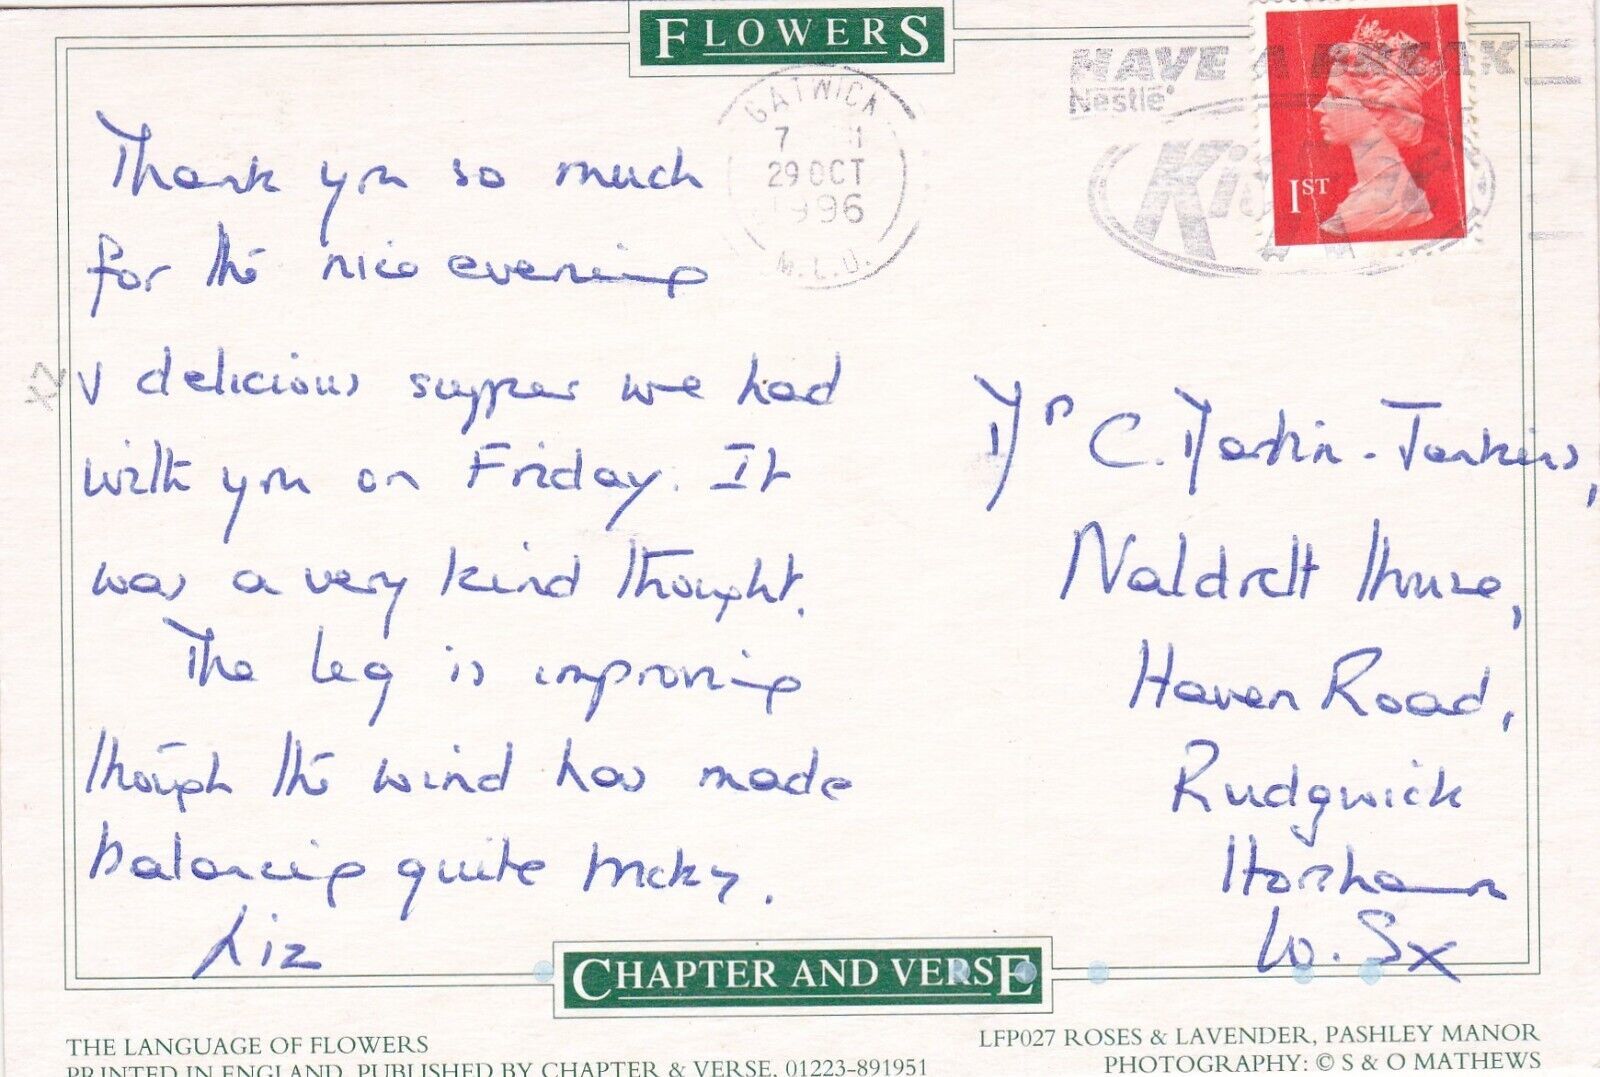 FLOWERS
GATWICK
7
29 OCT
1996
M.L.O.
HAVE A BREAK
Nestlé
KitKat
1ST
Thank you so much
for the nice evening
x2
v delicious supper we had
with you on Friday. It
was a very kind thought.
The leg is improving
though the wind has made
balancing quite tricky.
Liz
C. Martin-Jenkins,
Naldrett House,
Haven Road,
Rudgwick
Horsham
W. Sx
CHAPTER AND VERSE
THE LANGUAGE OF FLOWERS
PRINTED IN ENGLAND. PUBLISHED BY CHAPTER & VERSE. 01223-891951
LFP027 ROSES & LAVENDER, PASHLEY MANOR
PHOTOGRAPHY: © S & O MATHEWS